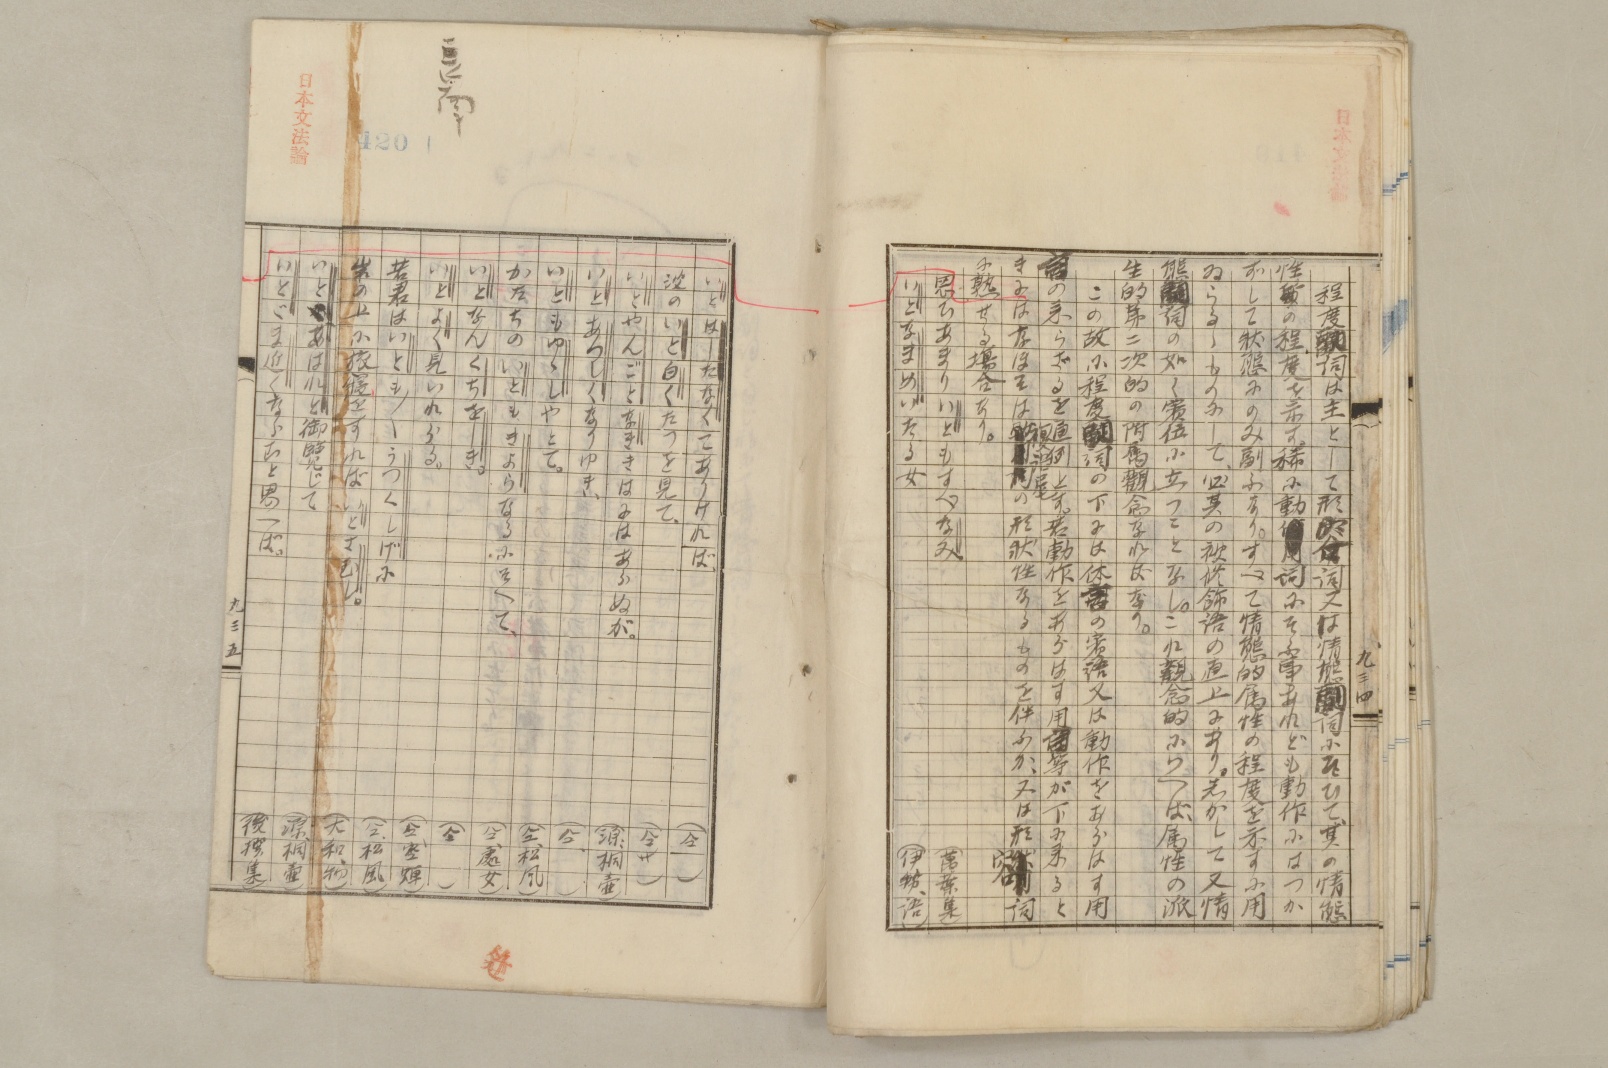 日本文法論
九三四
程度副詞は主として形容詞又は情態副詞にそひて、其の情態
性質の程度を示す。稀に動作用詞にそふ事あれども動作にはつか
ずして状態にのみ副ふなり。すべて情態的属性の程度を示すに用
ゐらるゝものにして、必其の被修飾語の直上にあり。しかして又情
態副詞の如く賓位に立つことなし。これ観念的にいへば、属性の派
生的第二次的の附属観念なればなり。
この故に程度副詞の下には体言の賓語又は動作をあらはす用
言の来らざるを通則とす。若動作をあらはす用言等が下に来ると
きにはなほそは
の形状性なるものを伴ふか、又は形容詞
に熟せる場合なり。
思ひあまりいともすべなみ (万葉集)
いとなまめいたる女 (伊勢、語)
日本文法論
420
いとはしたなくてありければ、 (仝 )
波のいと白くたつを見て、 (仝 七)
いとやんごとなききはにはあらぬが。 (源、桐壺)
いとあつしくなりゆき、 (仝、 )
いともゆゝしやとて。 (仝、松風)
かたちのいともきよらなるにそへて、 (仝、処女)
いとなんくちをしき。 (仝 )
いとよく見いれらる。 (仝、空蝉)
若君はいともいともうつくしげに (仝、松風)
岩の上に旅寝をすればいとさむし。 (大和、物)
いとあはれと御覧じて (源、桐壺)
いとゞま近くならむと思へば。 (後撰集)
九三五